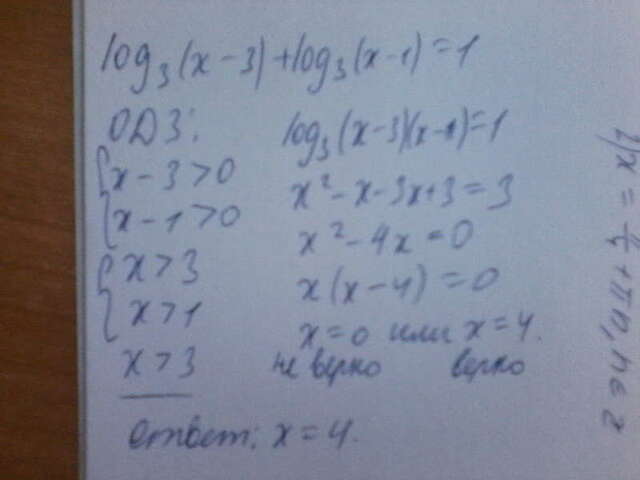 log₃(x-3)+log₃(x-1)=1
ОДЗ:
{x-3>0
x-1>0
{x>3
x>1
x>3
log₃(x-3)(x-1)=1
x²-x-3x+3=3
x²-4x=0
x(x-4)=0
x=0 или x=4.
не верно верно
Ответ: x=4.
x/2 = π/4 + πn, n∈z